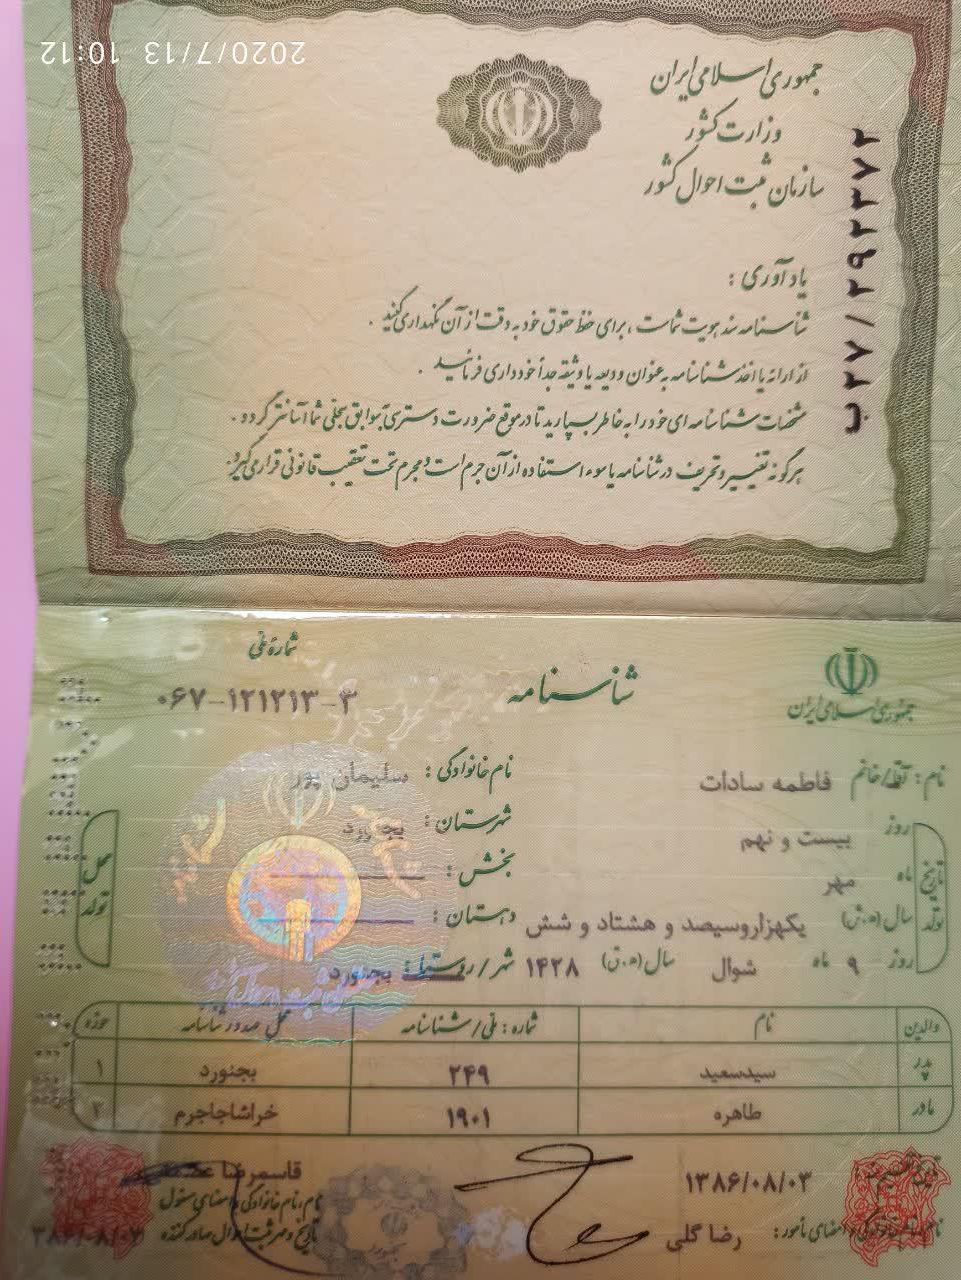 2020/7/13 10:12
جمهوری اسلامی ایران
وزارت کشور
سازمان ثبت احوال کشور
ب۲۷/۲۹۲۳۷۲
یادآوری :
شناسنامه سند هویت شماست ، برای حفظ حقوق خود به دقت از آن نگهداری کنید .
از ارائه یا اخذ شناسنامه به عنوان ودیعه یا وثیقه جداً خودداری فرمائید .
مشخصات شناسنامه ای خود را به خاطر بسپارید تا در موقع ضرورت دسترسی به سوابق سجلی شما آسانتر گردد .
هرگونه تغییر و تحریف در شناسنامه یا سوء استفاده از آن جرم است و مجرم تحت تعقیب قانونی قرار می گیرد .
شماره ملی
۰۶۷-۱۲۱۲۱۳-۳
شناسنامه
جمهوری اسلامی ایران
نام : آقا/خانم فاطمه سادات
نام خانوادگی : سلیمان پور
تاریخ تولد
روز بیست و نهم
ماه مهر
سال (ه.ش) یکهزاروسیصد و هشتاد و شش
روز ۹ ماه شوال سال (ه.ق) ۱۴۲۸
محل تولد
شهرستان : بجنورد
بخش :
دهستان :
شهر / روستا : بجنورد
والدین نام شماره : ملی/شناسنامه محل صدور شناسنامه حوزه
پدر سیدسعید ۲۴۹ بجنورد ۱
مادر طاهره ۱۹۰۱ خراشاجاجرم ۲
تاریخ تنظیم سند : ۱۳۸۶/۰۸/۰۳
قاسمرضا
نام ، نام خانوادگی و امضای مسئول
تاریخ و مهر ثبت احوال صادر کننده
نام ، نام خانوادگی و امضای مأمور : رضا گلی